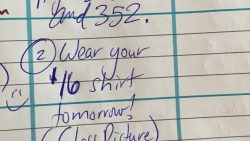 and 352.
② Wear your
$16 shirt
tomorrow!
(Class Picture)